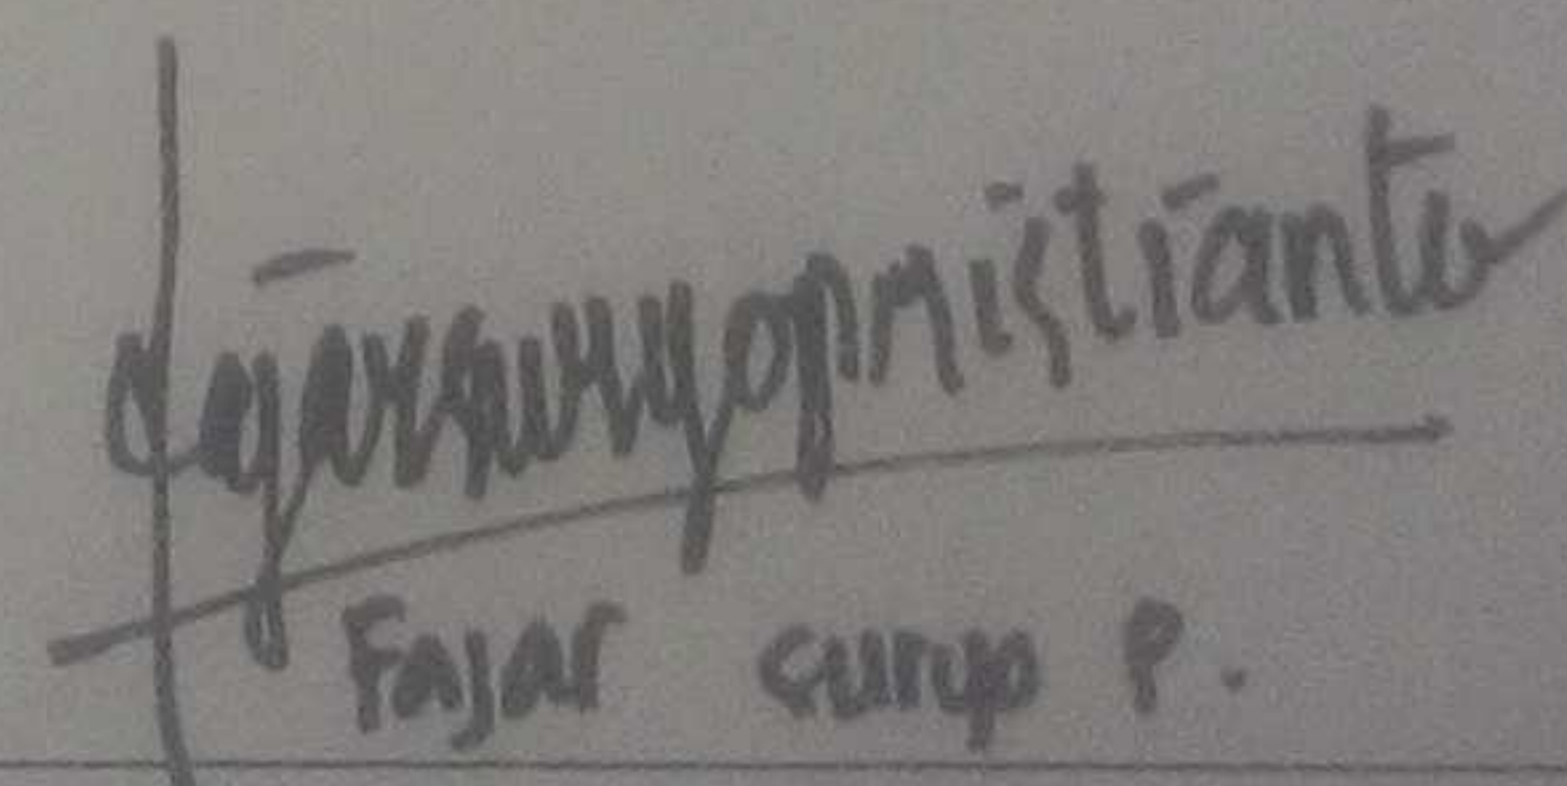 fajarsuryopristianto
Fajar suryo P.